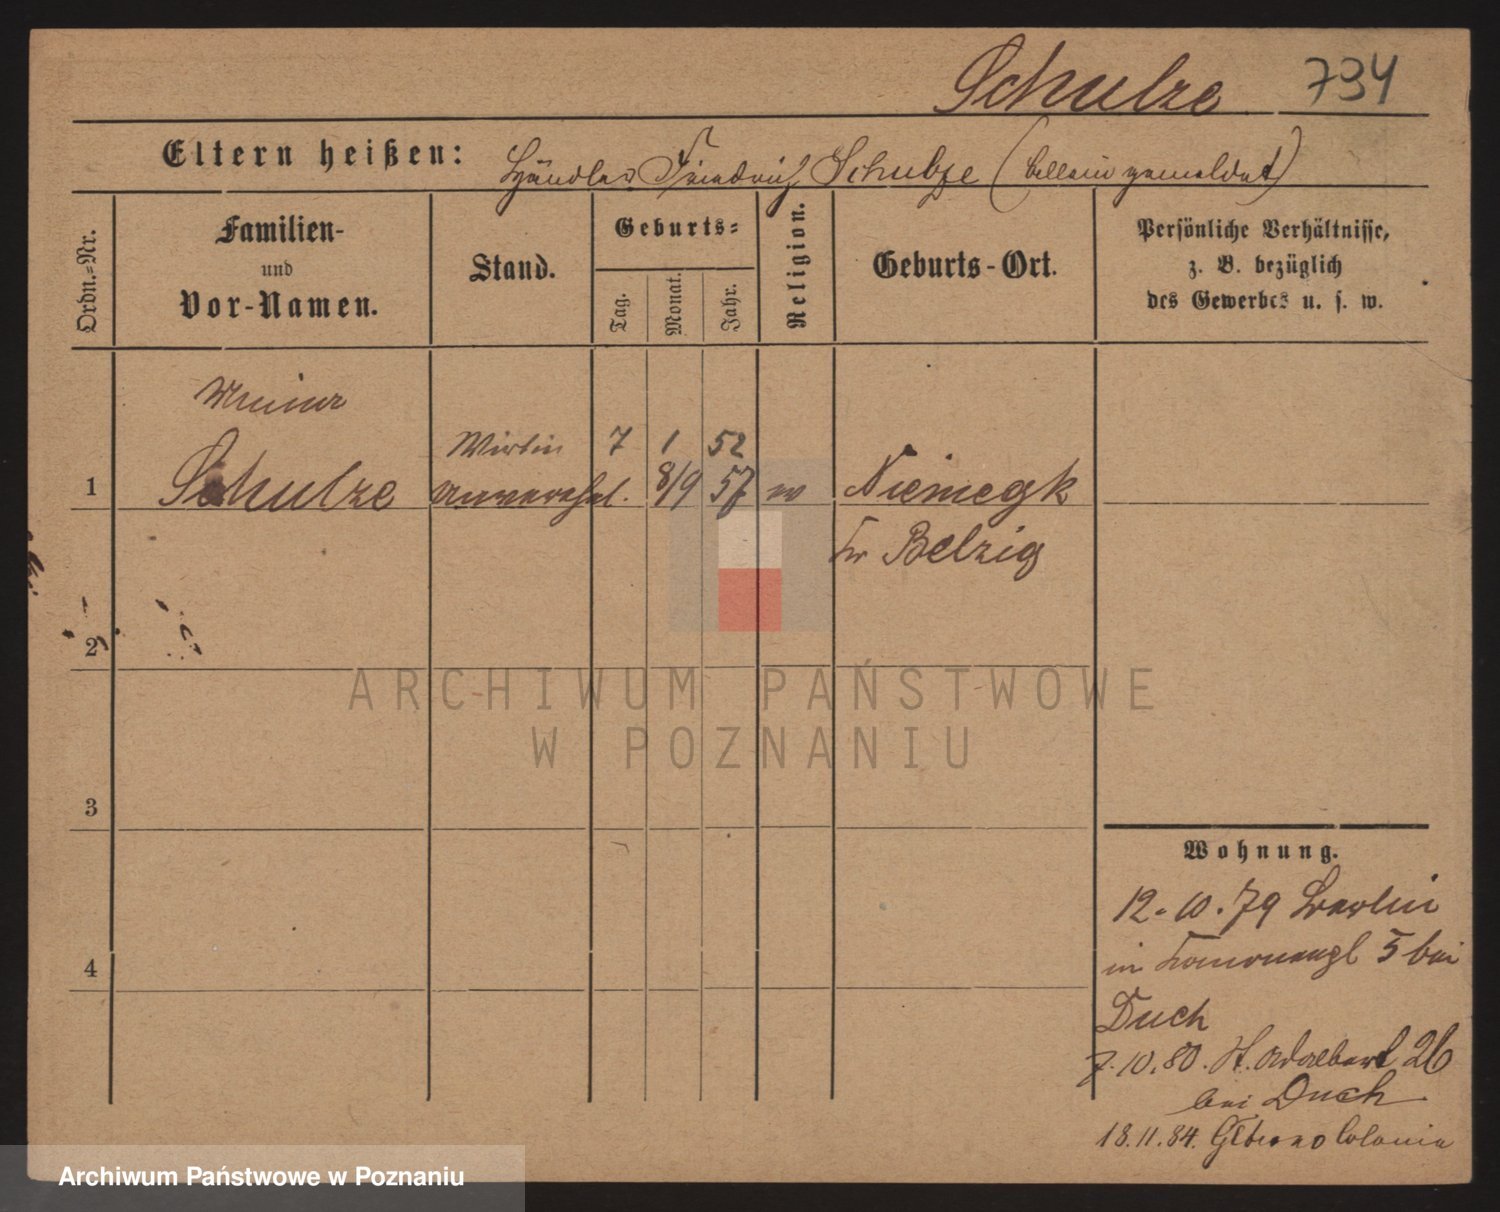 Schulze 734
Eltern heißen: Händler Friedrich Schulze (allein gemeldet)
Ordn.-Nr.
Familien-
und
Vor-Namen.
Stand.
Geburts-
Tag.
Monat.
Jahr.
Religion.
Geburts-Ort.
Persönliche Verhältnisse,
z. B. bezüglich
des Gewerbes u. s. w.
Wirtin 7 1 52
1 Schulze unverehel. 8/9 57 ev Niemegk
Kr Belzig
2
3
4
Wohnung.
12.10.79
in 5 bei
Duch
7.10.80. St. Adalbert 26
bei Duch
18.11.84.
ARCHIWUM PAŃSTWOWE
W POZNANIU
Archiwum Państwowe w Poznaniu